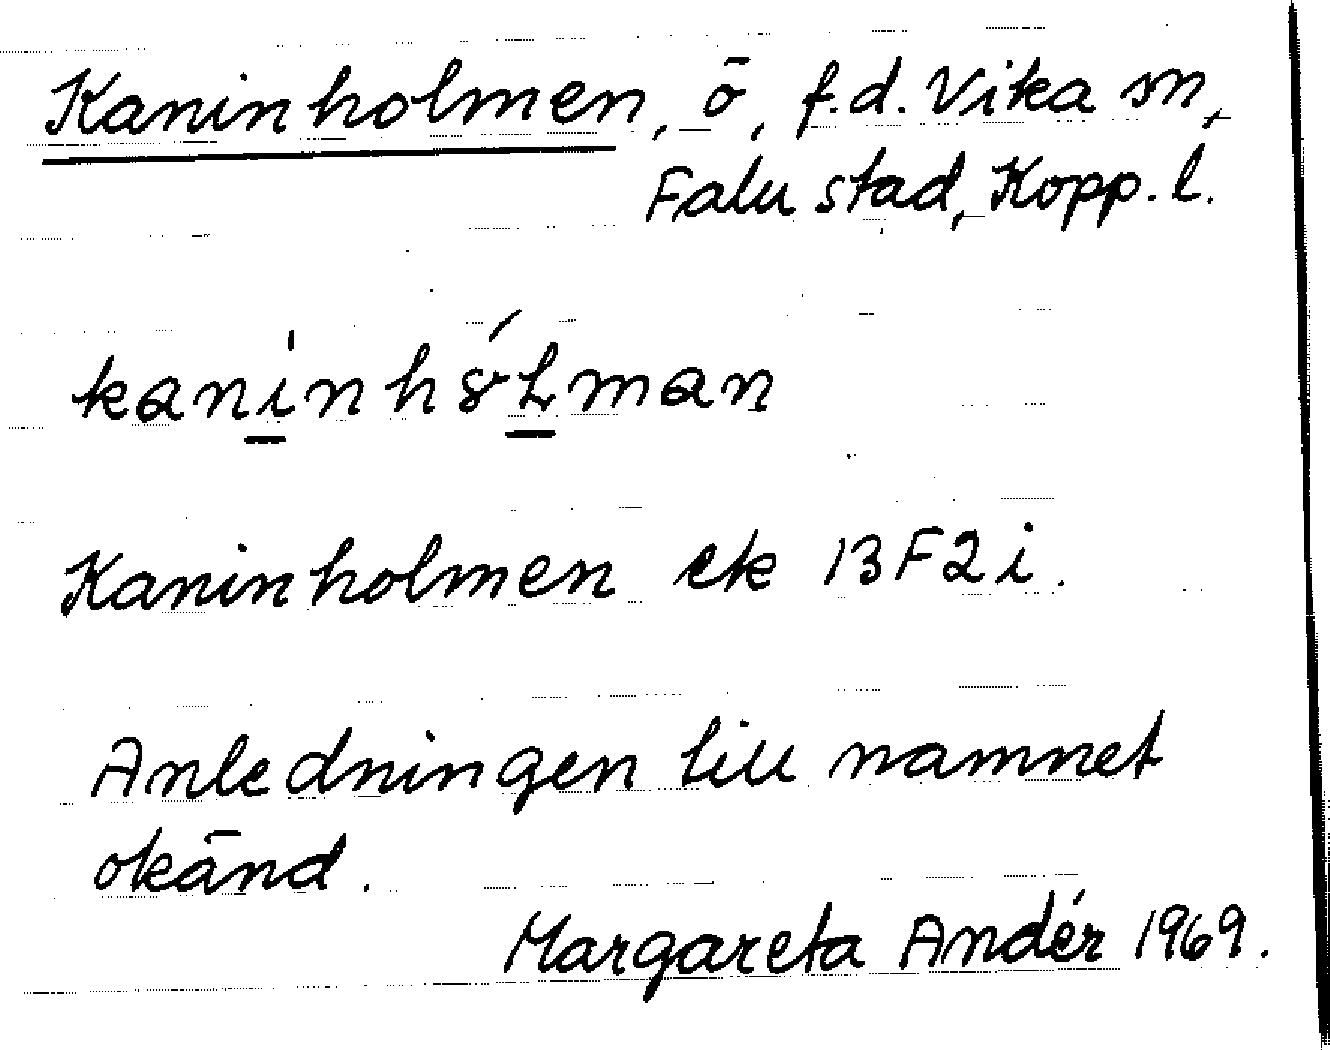 Kaninholmen, ö, f.d. Vika sn,
Falu stad, Kopp. l.
Kaninholmen ek 13F2i.
Anledningen till namnet
okänd.
Margareta Andér 1969.